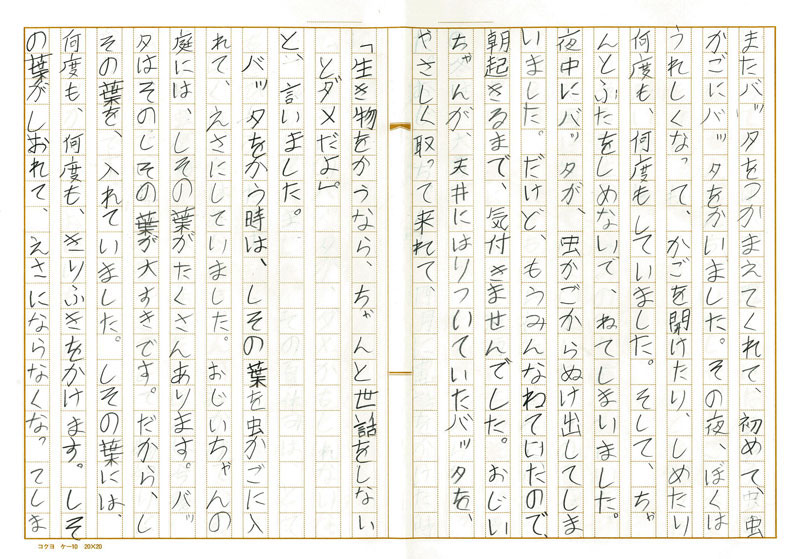 またバッタをつかまえてくれて、初めて、虫
かごにバッタをかいました。その夜、ぼくは
うれしくなって、かごを開けたり、しめたり
何度も、何度もしていました。そして、ちゃ
んとふたをしめないで、ねてしまいました。
夜中にバッタが、虫かごからぬけ出してしま
いました。だけど、もうみんなねていたので、
朝起きるまで、気付きませんでした。おじい
ちゃんが、天井にはりついていたバッタを、
やさしく取って来れて、
「生き物をかうなら、ちゃんと世話をしない
とダメだよ」
と、言いました。
バッタをかう時は、しその葉を虫かごに入
れて、えさにしていました。おじいちゃんの
庭には、しその葉がたくさんあります。バッ
タはそのしその葉が大すきです。だから、し
その葉を、入れていました。しその葉には、
何度も、何度も、きりふきをかけます。しそ
の葉がしおれて、えさにならなくなってしま
コクヨ ケー10 20×20